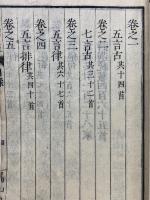 卷之一
五言古共十四首
卷之二
七言古共三十二首
卷之三
五言律共六十七首
卷之四
五言排律共四十首
卷之五